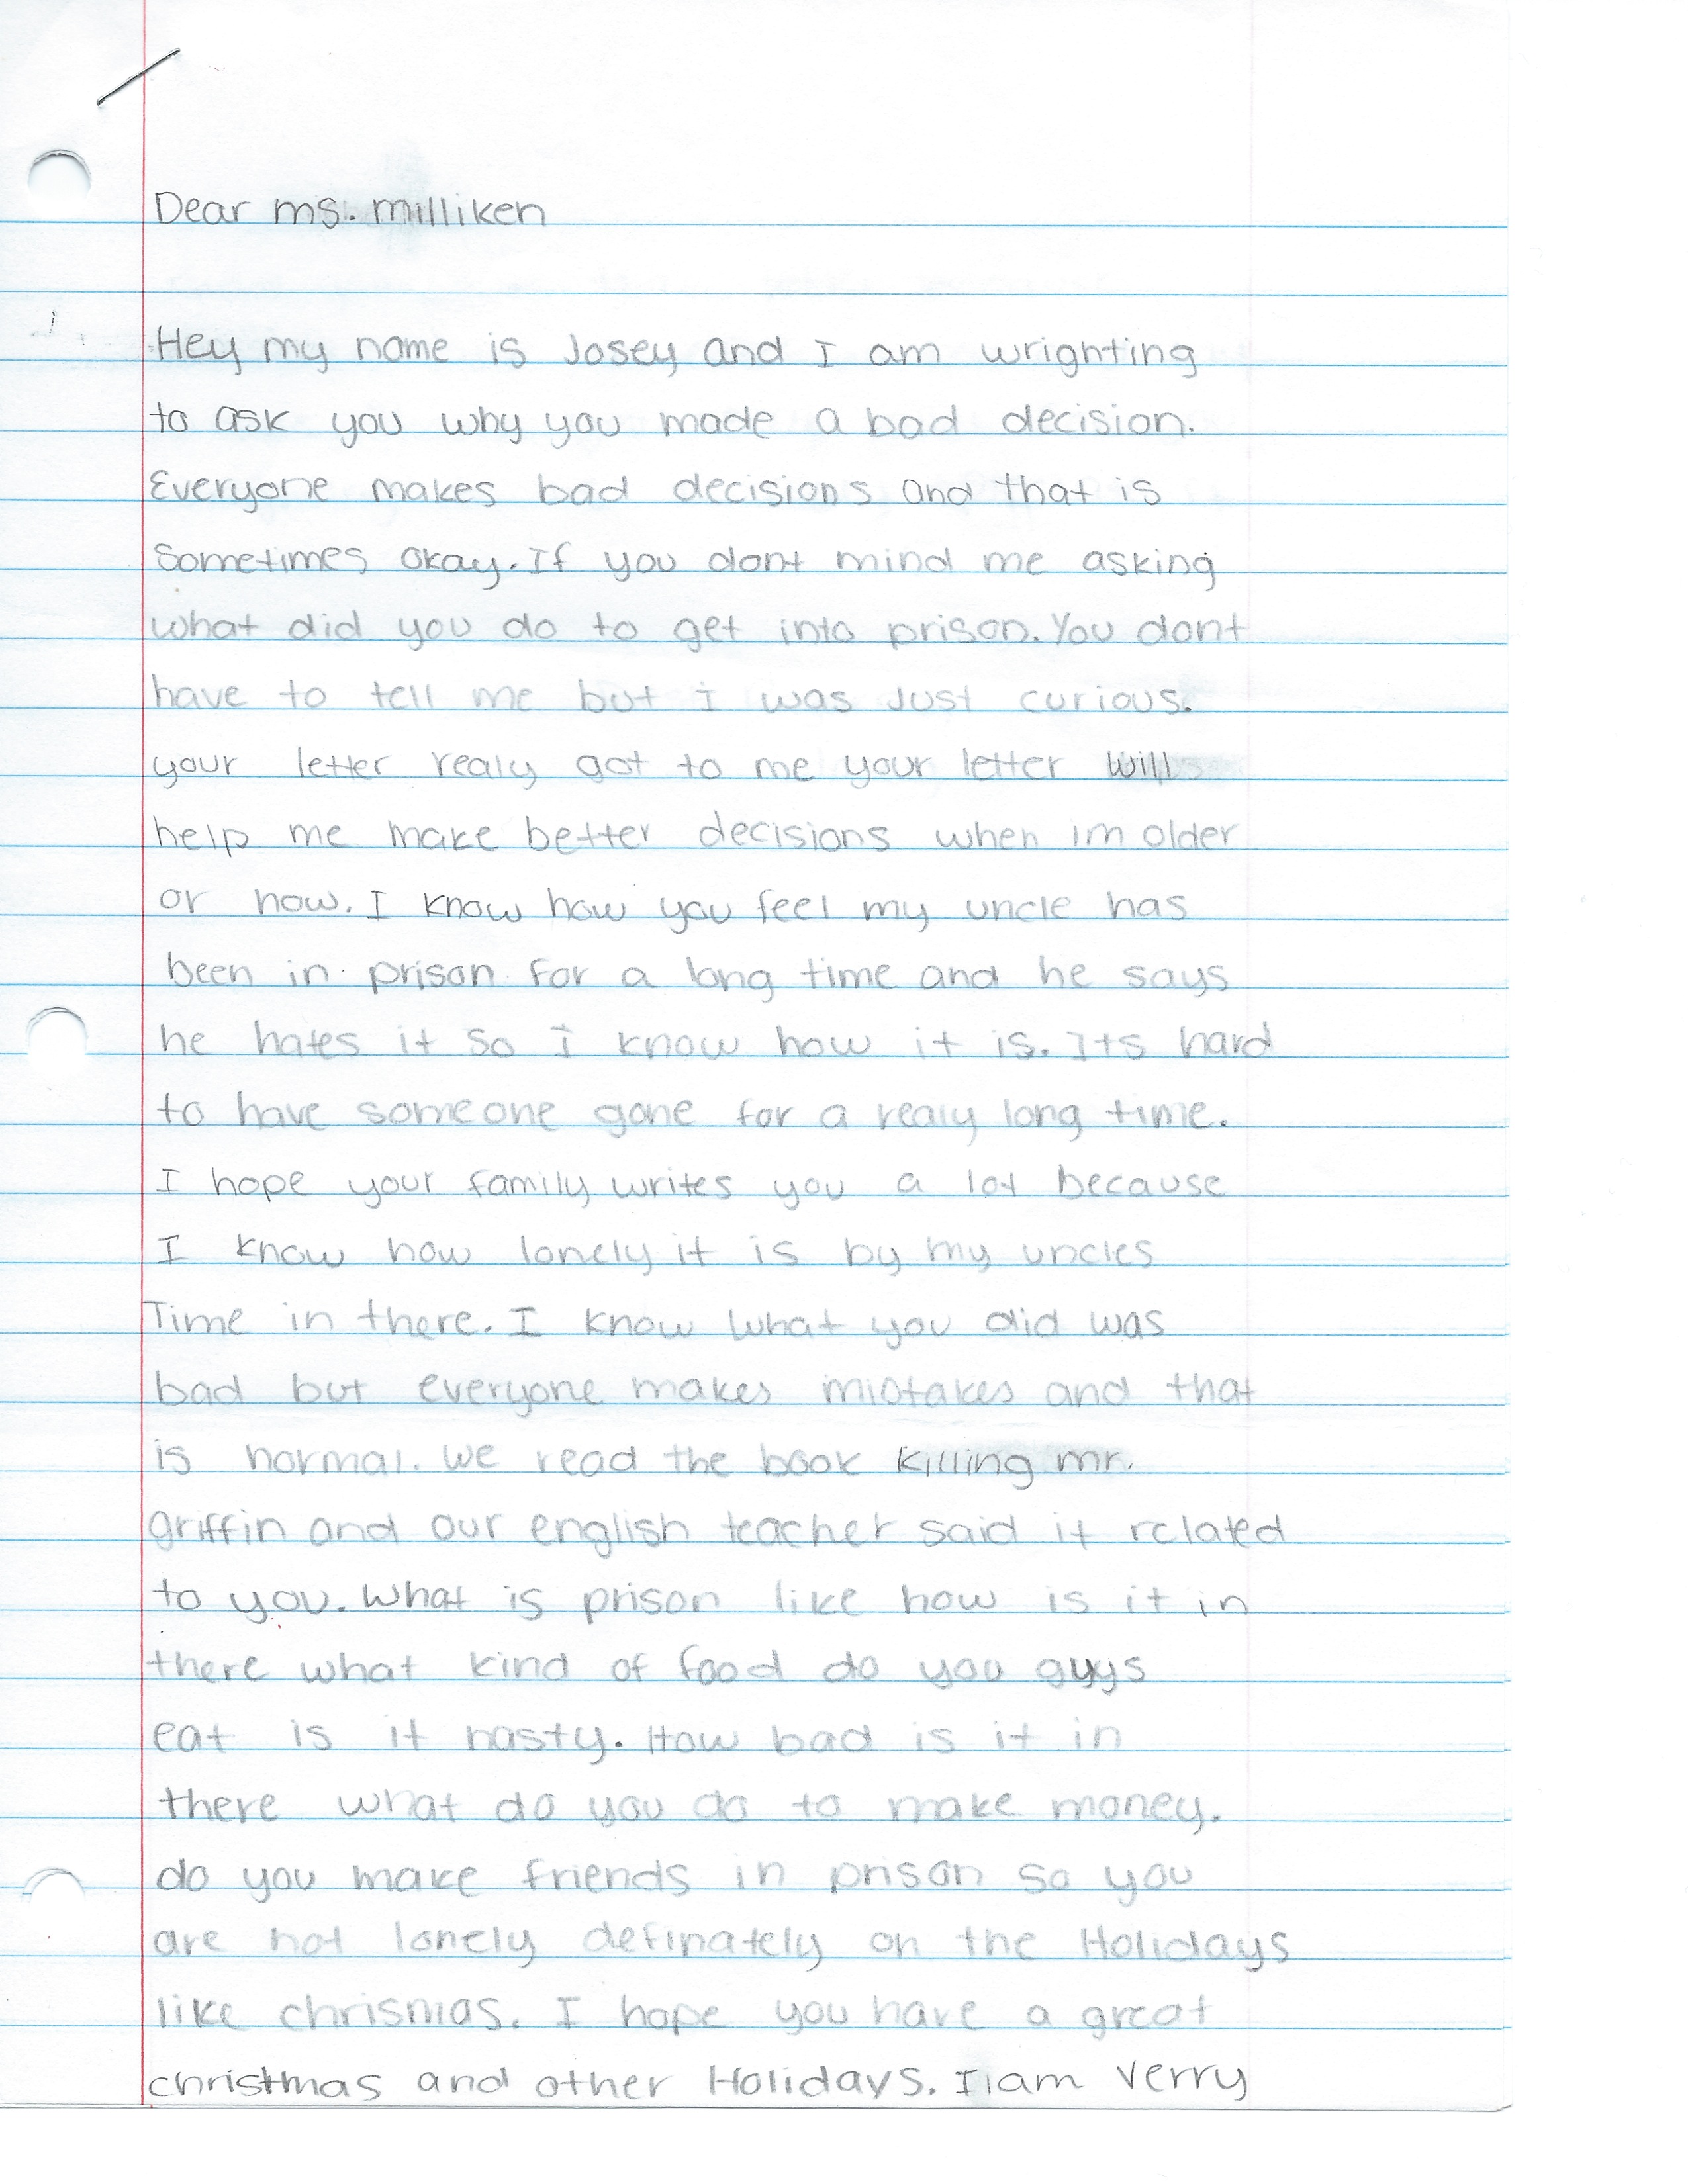 Dear ms. milliken
Hey my name is Josey and I am wrighting
to ask you why you made a bad decision.
Everyone makes bad decisions and that is
sometimes okay. If you dont mind me asking
what did you do to get into prison. You dont
have to tell me but i was Just curious.
your letter realy got to me your letter will
help me make better decisions when im older
or now. I know how you feel my uncle has
been in prison for a long time and he says
he hates it so I know how it is. Its hard
to have someone gone for a realy long time.
I hope your family writes you a lot because
I know how lonely it is by my uncles
Time in there. I know what you did was
bad but everyone makes mistakes and that
is normal. We read the book killing mr.
griffin and our english teacher said it related
to you. What is prison like how is it in
there what kind of food do you guys
eat is it nasty. How bad is it in
there what do you do to make money.
do you make friends in prison so you
are not lonely definately on the Holidays
like chrismas. I hope you have a great
christmas and other Holidays. I am verry